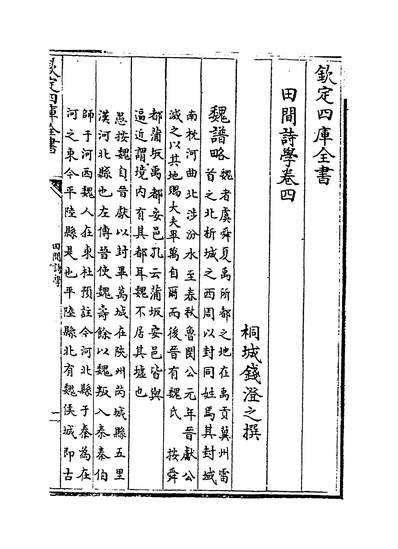 欽定四庫全書
田間詩學卷四
桐城錢澄之撰
魏譜略
魏者虞舜夏禹所都之地在禹貢冀州雷
首之北析城之西周以封同姓焉其封域
南枕河曲北涉汾水至春秋魯閔公元年晉獻公
滅之以其地賜大夫畢萬自爾而後晉有魏氏
按舜
都蒲坂禹都安邑孔云蒲坂安邑皆與
逼近謂境内有其都耳魏不居其墟也
愚按魏自晉獻以封畢萬城在陜州芮城縣五里
漢河北縣也左傳晉使魏壽餘以魏叛入秦秦伯
師于河西魏人在東杜預註今河北縣于秦為在
河之東今平陸縣是也平陸縣北有魏侯城即古
欽定四庫全書
田間詩學
一